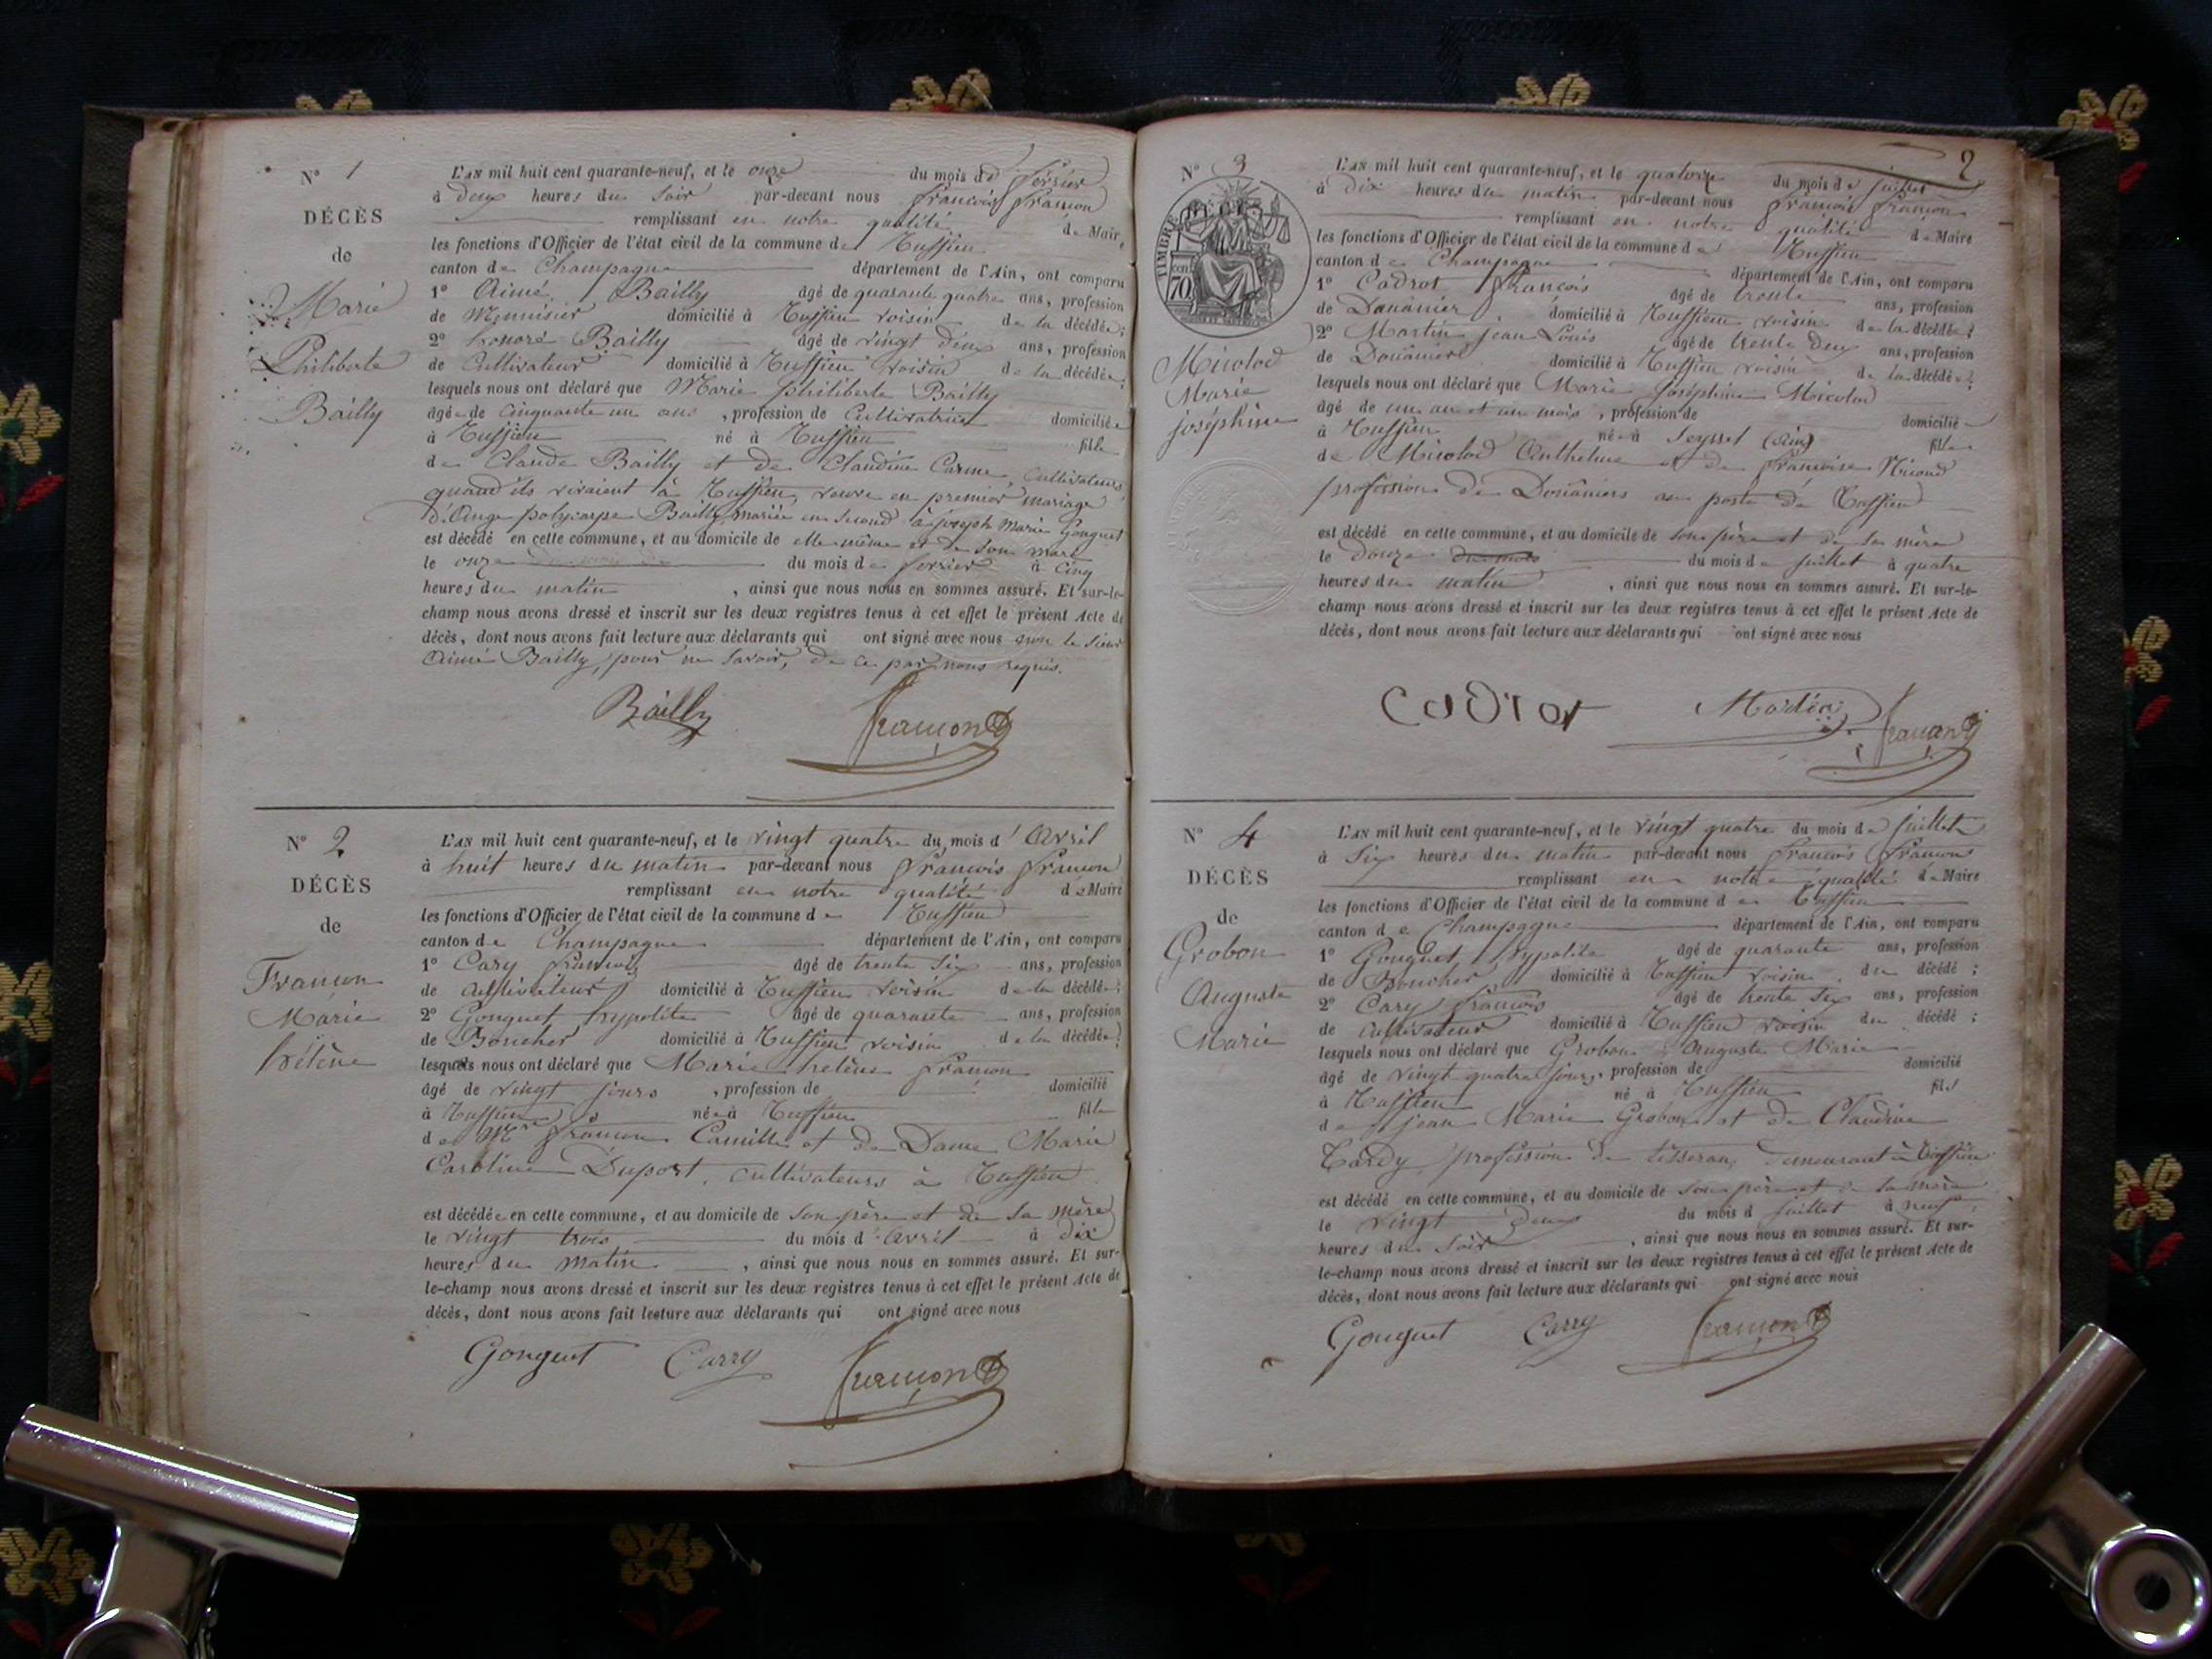 N° 1
DÉCÈS
de
Marie
Philiberte
Bailly
L'AN mil huit cent quarante-neuf, et le onze du mois de février
à deux heures du soir par-devant nous françois françon
remplissant en notre qualité de Maire
les fonctions d'Officier de l'état civil de la commune de Ruffieu
canton de Champagne département de l'Ain, ont comparu
1° Aimé Bailly âgé de quarante quatre ans, profession
de Menuisier domicilié à Ruffieu voisin de la décédée;
2° honoré Bailly âgé de vingt deux ans, profession
de Cultivateur domicilié à Ruffieu voisin de la décédée;
lesquels nous ont déclaré que Marie philiberte Bailly
âgée de cinquante un ans, profession de Cultivatrice domiciliée
à Ruffieu né à Ruffieu fille
de Claude Bailly et de Claudine Carme, Cultivateurs,
quand ils vivaient à Ruffieu, veuve en premier mariage
d'Ange polycarpe Bailly, mariée en second à joseph Marie Gonguet
est décédé en cette commune, et au domicile de elle même et de son mari
le onze du mois de février à cinq
heures du matin, ainsi que nous nous en sommes assuré. Et sur-le-
champ nous avons dressé et inscrit sur les deux registres tenus à cet effet le présent Acte de
décès, dont nous avons fait lecture aux déclarants qui ont signé avec nous non le sieur
Aimé Bailly, pour ne savoir, de ce par nous requis.
Bailly françon
N° 2
DÉCÈS
de
Françon
Marie
hélène
L'AN mil huit cent quarante-neuf, et le vingt quatre du mois d'Avril
à huit heures du matin par-devant nous françois françon
remplissant en notre qualité de Maire
les fonctions d'Officier de l'état civil de la commune de Ruffieu
canton de Champagne département de l'Ain, ont comparu
1° Cary françois âgé de trente six ans, profession
de Cultivateur domicilié à Ruffieu voisin de la décédée;
2° Gonguet hypolite âgé de quarante ans, profession
de Boucher domicilié à Ruffieu voisin de la décédée;
lesquels nous ont déclaré que Marie hélène françon
âgé de vingt jours, profession de domicilié
à Ruffieu née à Ruffieu fille
de Mr françon Camille et de Dame Marie
Caroline Duport, cultivateurs à Ruffieu
est décédée en cette commune, et au domicile de son père et de sa mère
le vingt trois du mois d'Avril à dix
heures du matin, ainsi que nous nous en sommes assuré. Et sur-
le-champ nous avons dressé et inscrit sur les deux registres tenus à cet effet le présent Acte de
décès, dont nous avons fait lecture aux déclarants qui ont signé avec nous
Gonguet Carry françon
2
N° 3
TIMBRE
70
Micolod
Marie
joséphine
L'AN mil huit cent quarante-neuf, et le quatorze du mois de juillet
à dix heures du matin par-devant nous françois françon
remplissant en notre qualité de Maire
les fonctions d'Officier de l'état civil de la commune de Ruffieu
canton de Champagne département de l'Ain, ont comparu
1° Cadrot françois âgé de trente ans, profession
de Douânier domicilié à Ruffieu voisin de la décédée;
2° Martin jean Louis âgé de trente deux ans, profession
de Douânier domicilié à Ruffieu voisin de la décédée;
lesquels nous ont déclaré que Marie joséphine Micolod
âgé de un an et un mois, profession de domicilié
à Ruffieu née à Seyssel (Ain) fille
de Micolod Anthelme et de françoise Nicoud
profession de Douâniers au poste de Ruffieu
est décédé en cette commune, et au domicile de son père et de sa mère
le douze du mois du mois de juillet à quatre
heures du matin, ainsi que nous nous en sommes assuré. Et sur-le-
champ nous avons dressé et inscrit sur les deux registres tenus à cet effet le présent Acte de
décès, dont nous avons fait lecture aux déclarants qui ont signé avec nous
Cadrot Martin françon
N° 4
DÉCÈS
de
Grobon
Auguste
Marie
L'AN mil huit cent quarante-neuf, et le vingt quatre du mois de juillet
à six heures du matin par-devant nous françois françon
remplissant en notre qualité de Maire
les fonctions d'Officier de l'état civil de la commune de Ruffieu
canton de Champagne département de l'Ain, ont comparu
1° Gonguet hypolite âgé de quarante ans, profession
de Boucher domicilié à Ruffieu voisin du décédé;
2° Cary françois âgé de trente six ans, profession
de Cultivateur domicilié à Ruffieu voisin du décédé;
lesquels nous ont déclaré que Grobon Auguste Marie
âgé de vingt quatre jours, profession de domicilié
à Ruffieu né à Ruffieu fils
de jean Marie Grobon et de Claudine
Tardy, profession de tisseran, demeurant à Ruffieu
est décédé en cette commune, et au domicile de son père et de sa mère
le vingt deux du mois d juillet à neuf
heures du soir, ainsi que nous nous en sommes assuré. Et sur-
le-champ nous avons dressé et inscrit sur les deux registres tenus à cet effet le présent Acte de
décès, dont nous avons fait lecture aux déclarants qui ont signé avec nous
Gonguet Carry françon